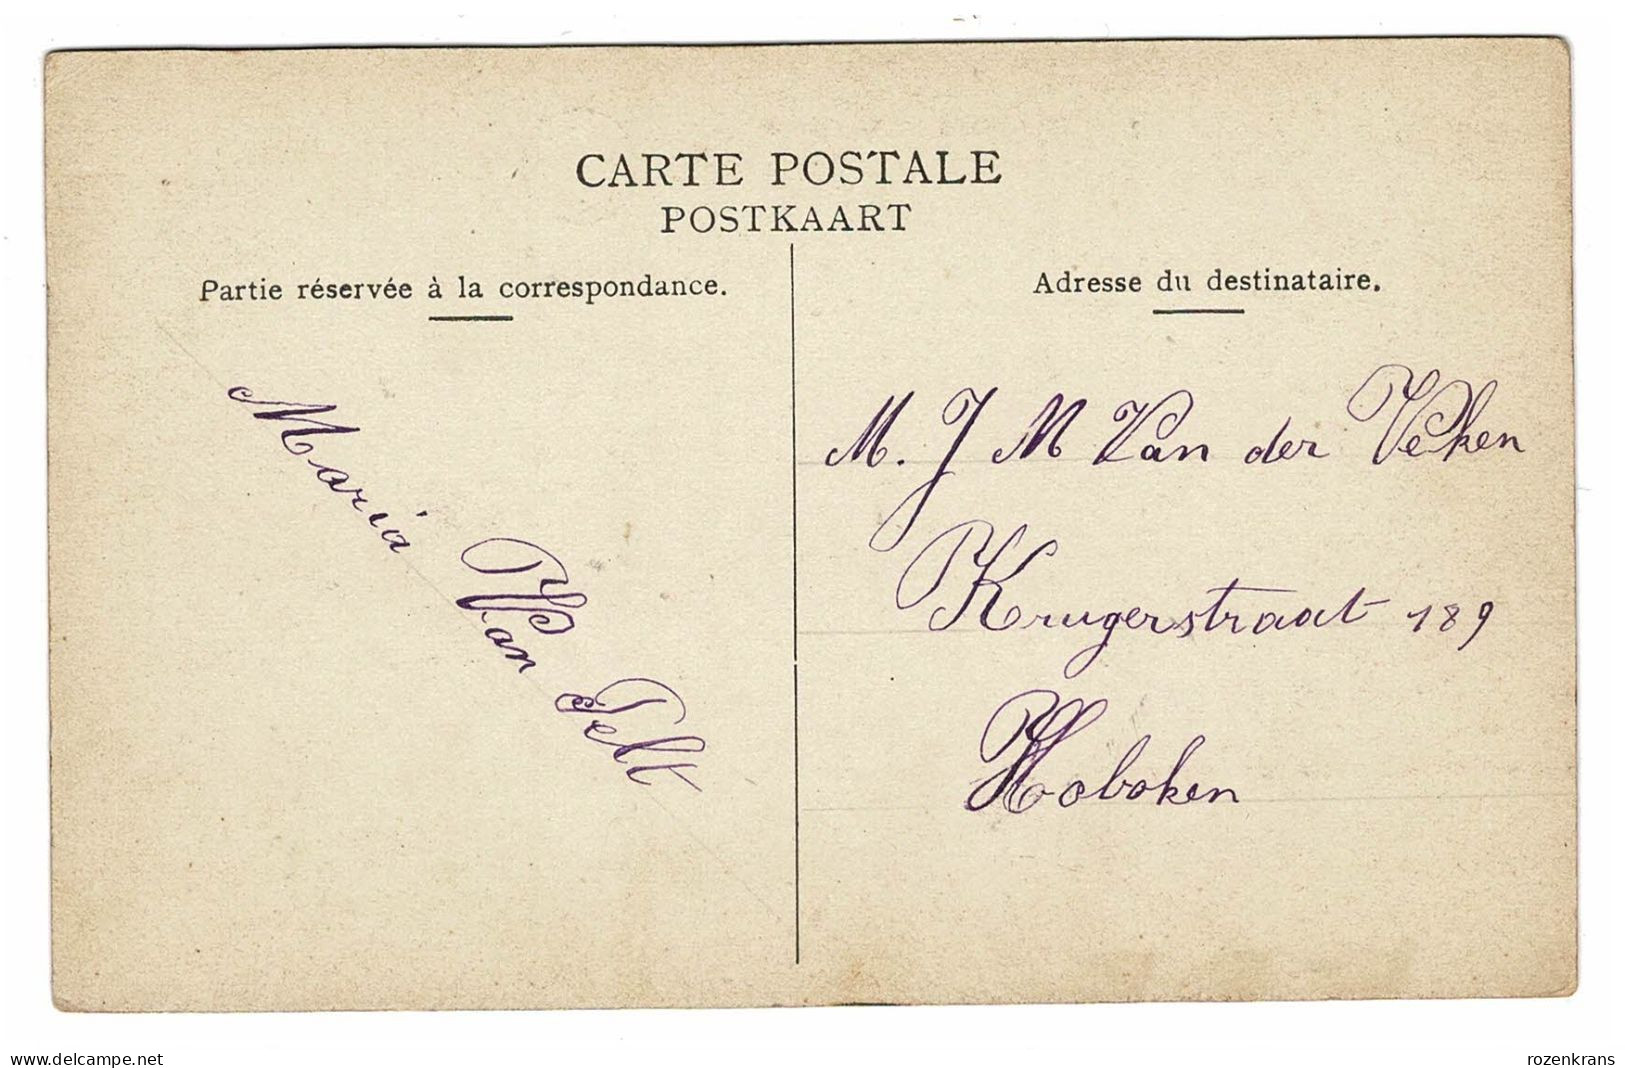 CARTE POSTALE
POSTKAART
Partie réservée à la correspondance.
Maria Van Pelt
Adresse du destinataire.
M. J M Van der Veken
Krugerstraat 189
Hoboken
www.delcampe.net
rozenkrans